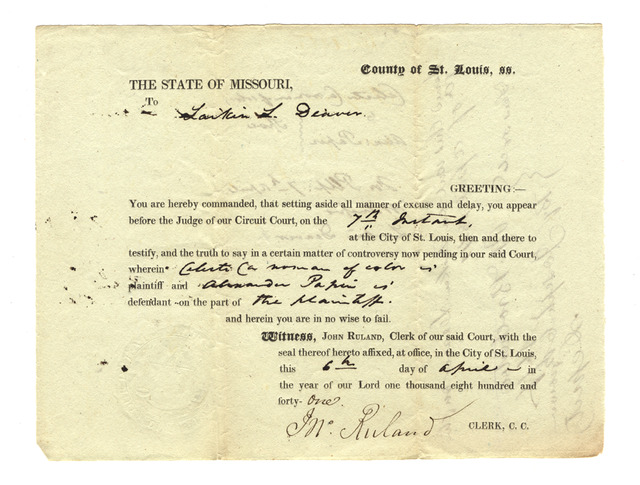 County of St. Louis, ss.
THE STATE OF MISSOURI,
To
Larkin L. Deaver
GREETING:—
You are hereby commanded, that setting aside all manner of excuse and delay, you appear
before the Judge of our Circuit Court, on the 7th Instant,
at the City of St. Louis, then and there to
testify, and the truth to say in a certain matter of controversy now pending in our said Court,
wherein Celeste (a woman of color is
plaintiff and Alexander Papin is
defendant on the part of the plaintiff.
and herein you are in no wise to fail.
Witness, JOHN RULAND, Clerk of our said Court, with the
seal thereof hereto affixed, at office, in the City of St. Louis,
this 6th day of April in
the year of our Lord one thousand eight hundred and
forty-one.
Jno Ruland CLERK, C. C.